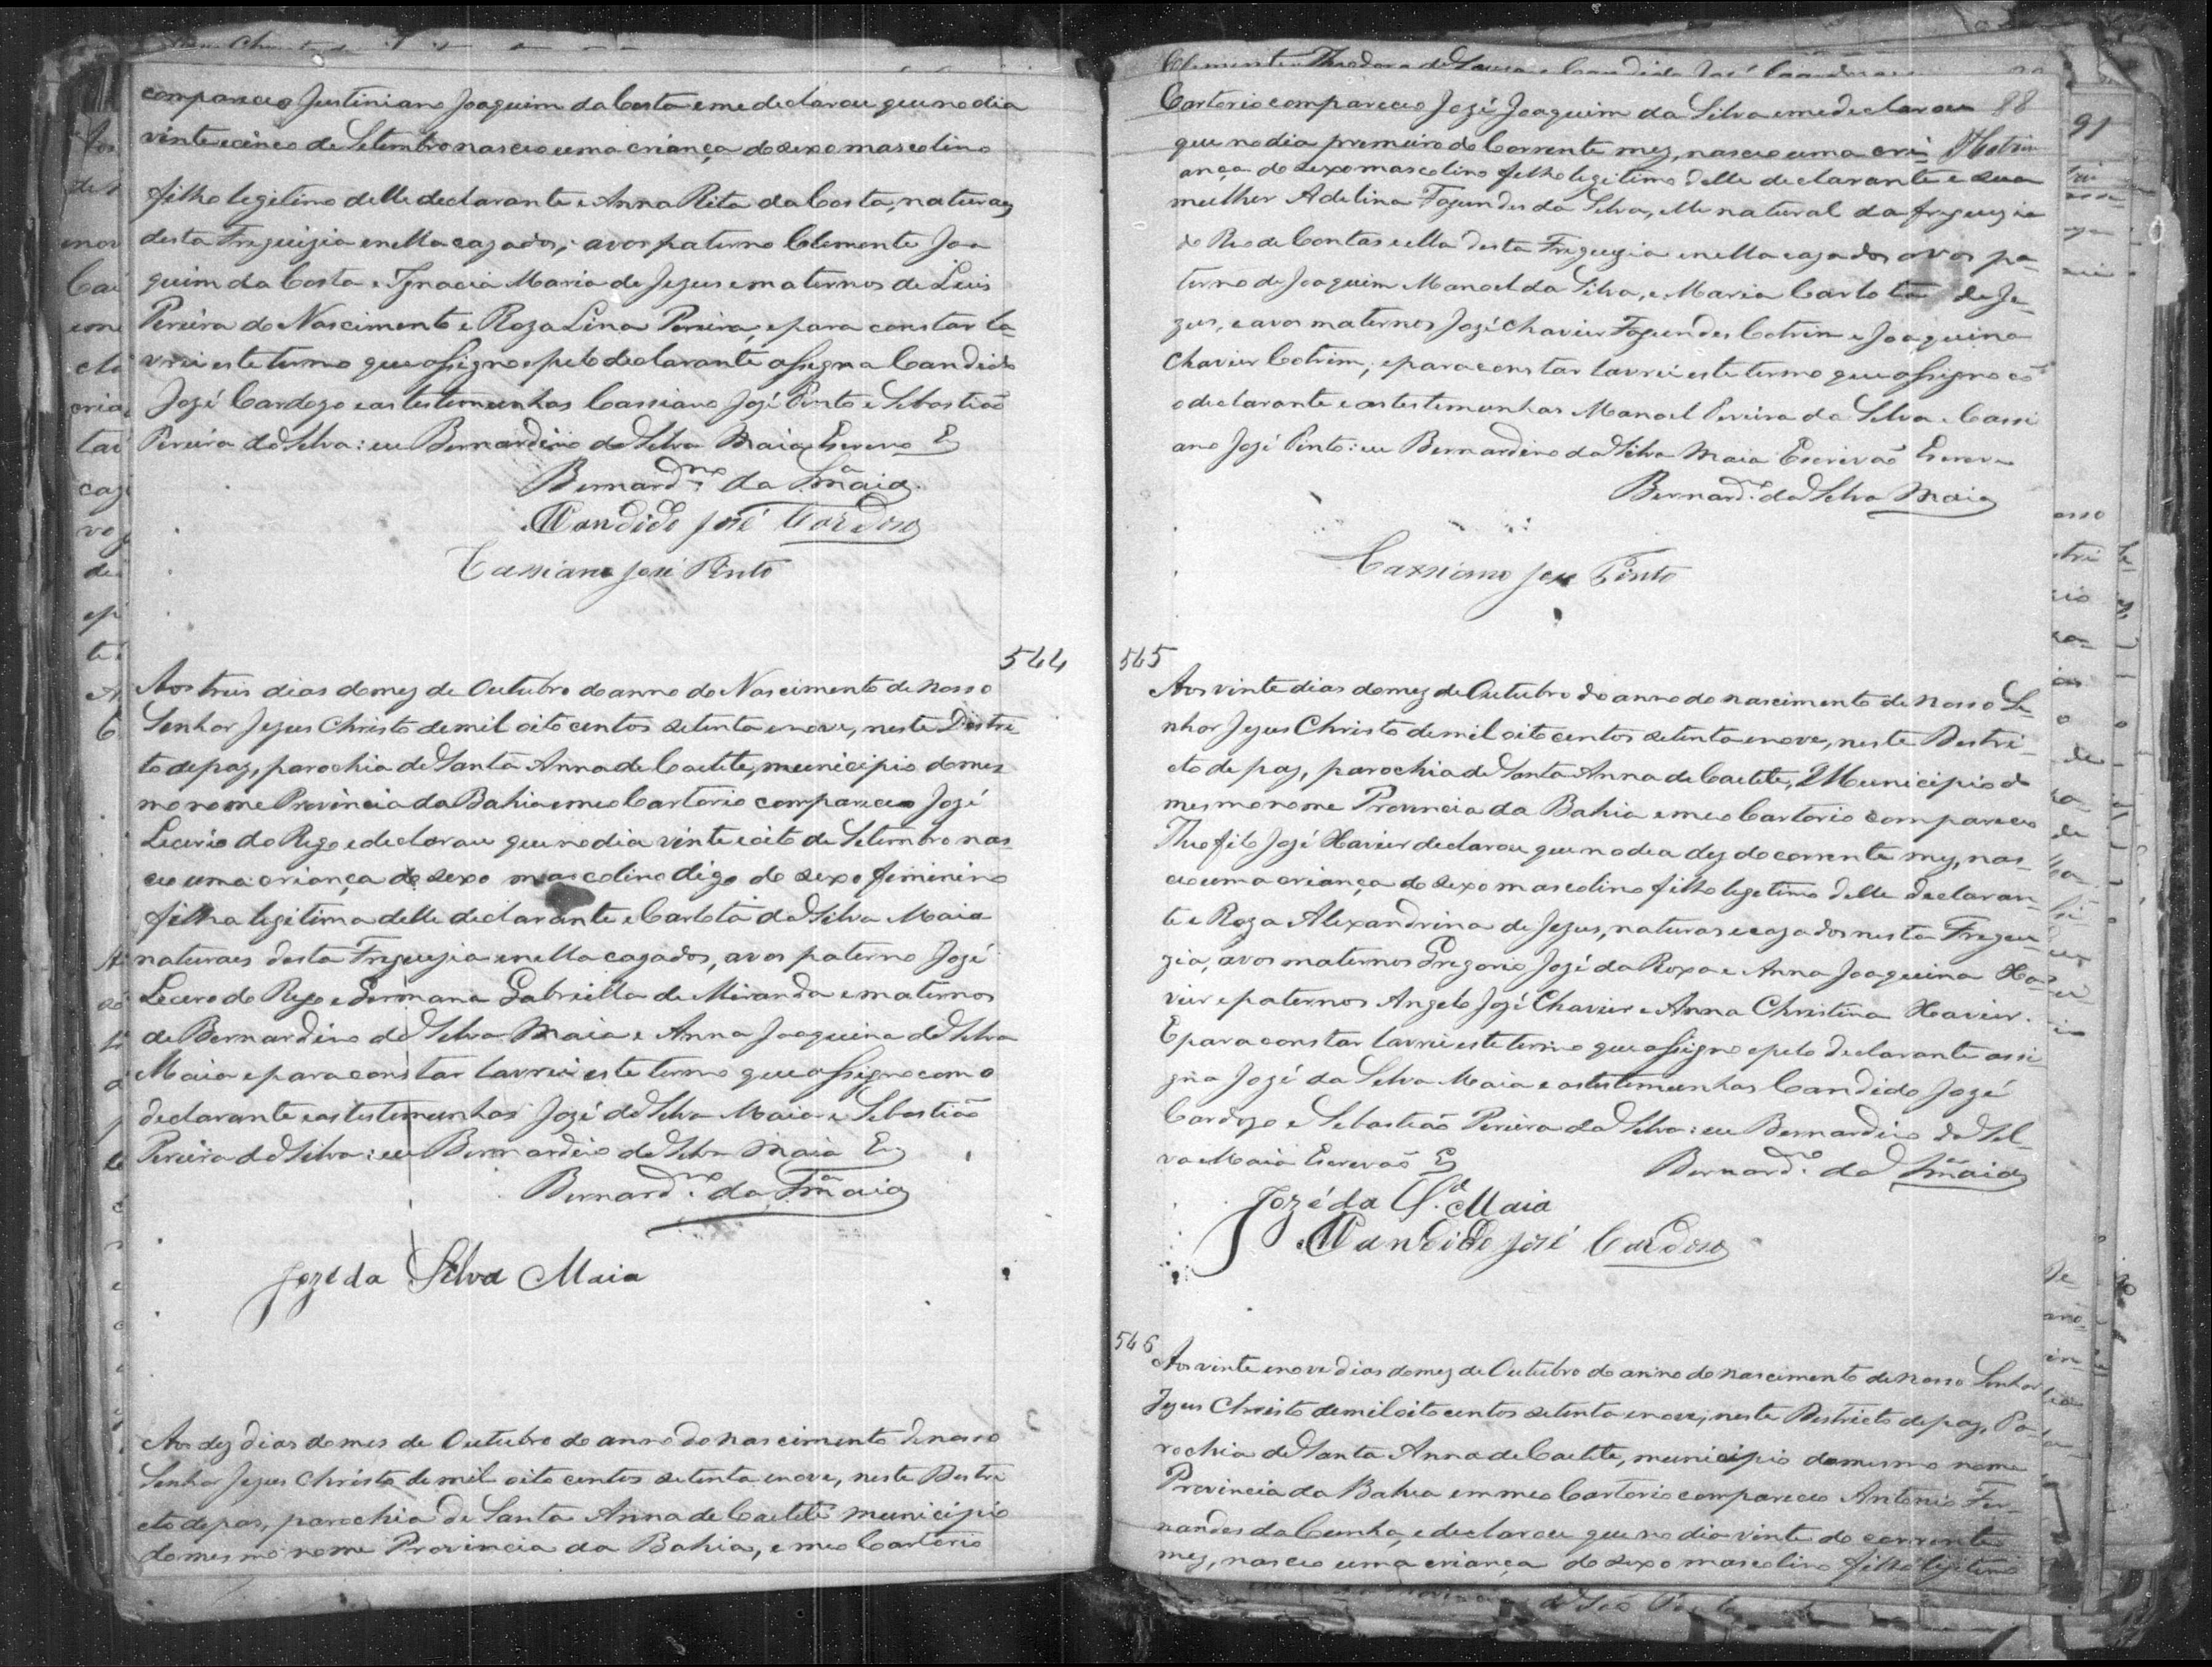 compareceo Justiniano Joaquim da Costa e me declarou que no dia
vinte e cinco de Setembro nasceo uma criança do sexo mascolino
filho legitimo delle declarante e Anna Rita da Costa, naturaes
desta Freguizia e nella cazados; avos paterno Clemente Joa
quim da Costa e Ignacia Maria de Jezus e maternos de Luis
Pereira do Nascimento e Roza Lina Pereira, e para constar la-
vrei este termo que assigno e pelo declarante assigna Candido
Jozé Cardozo e as testemunhas Cassiano Jozé Pinto e Sebastião
Pereira da Silva: eu Bernardino da Silva Maia Escrevo E
Bernard.no da S.a Maia
Candido José Cardoso
Cassiano José Pinto
544
Aos treis dias do mez de Outubro do anno do Nascimento de nosso
Senhor Jezus Christo de mil oito centos setenta e nove, neste Distri
to de paz, parochia de Santa Anna de Caetite, municipio do mes
mo nome Provincia da Bahia e meo Cartorio compareceo Jozé
Lecerio do Rego e declarou que no dia vinte e oito de Setembro nas
ceo uma criança do sexo mascolino digo do sexo feminino
filha legitima delle declarante e Carlota da Silva Maia
naturaes desta Freguezia e nella cazados, avos paterno Jozé
Lecero do Rego e Germana Gabriella de Miranda e maternos
de Bernardino da Silva Maia e Anna Joaquina da Silva
Maia e para constar lavrei este termo que assigno com o
declarante e as testemunhas Jozé da Silva Maia e Sebastião
Pereira da Silva: eu Bernardino da Silva Maia E
Bernard.no da S.a Maia
Jozé da Silva Maia
Aos dez dias do mes de Outubro do anno do nascimento de nosso
Senhor Jezus Christo de mil oito centos setenta e nove, neste Destri
cto de pas, parochia de Santa Anna de Caetité municipio
do mesmo nome Provincia da Bahia, e meo Cartorio
88
Cartorio compareceo Jozé Joaquim da Silva e me declarou
que no dia premeiro do Corrente mez, nasceo uma cri-
ança do sexo mascolino filho legitimo delle declarante e sua
mulher Adelina Fagundes da Silva, elle natural da freguezia
do Rio de Contas e ella desta Freguezia e nella cazados avos pa-
terno de Joaquim Manoel da Silva, e Maria Carlota de Je-
zus, e avos maternos Jozé Chavier Fagundes Cotrim e Joaquina
Chavier Cotrim; e para constar lavrei este termo que assigno cõ
o declarante e as testemunhas Manoel Pereira da Silva e Cassi
ano Jozé Pinto: eu Bernardino da Silva Maia Escrivão Escrevo
Bernard.o da Silva Maia
Cassiano José Pinto
545
Aos vinte dias do mez de Outubro do anno do nascimento de nosso Se-
nhor Jezus Christo de mil oito centos setenta e nove, neste Destri-
cto de paz, parochia de Santa Anna de Caetite, Municipio do
mesmo nome Provincia da Bahia e meo Cartorio compareceo
Theofilo Jozé Xavier declarou que no dia dez do corrente mez, nas-
ceo uma criança do sexo mascolino filho legetimo delle declaran-
te e Roza Alexandrina de Jezus, naturas e cazados nesta Fregue
zia, avos maternos Gregorio Jozé da Roxa e Anna Joaquina Xa-
vier e paternos Angelo Jozé Chavier e Anna Christina Xavier.
E para constar lavrei este termo que assigno e pelo declarante assi
gna Jozé da Silva Maia e as testemunhas Candido Jozé
Cardozo e Sebastião Pereira da Silva: eu Bernardino da Sil-
va Maia Escrevão E
Bernard.o da S.a Maia
Jozé da S.a Maia
Candido José Cardoso
546
Aos vinte e nove dias do mez de Outubro do anno do nascimento de nosso Senhor
Jezus Christo de mil oito centos setenta e nove, neste Destricto de paz, Pa-
rochia de Santa Anna de Caetite, municipio do mesmo nome
Provincia da Bahia em meo Cartorio compareceo Antonio Fer-
nandes da Cunha, e declarou que no dia vinte do corrente
mez, nasceo uma criança do sexo mascolino filho legitimo
91